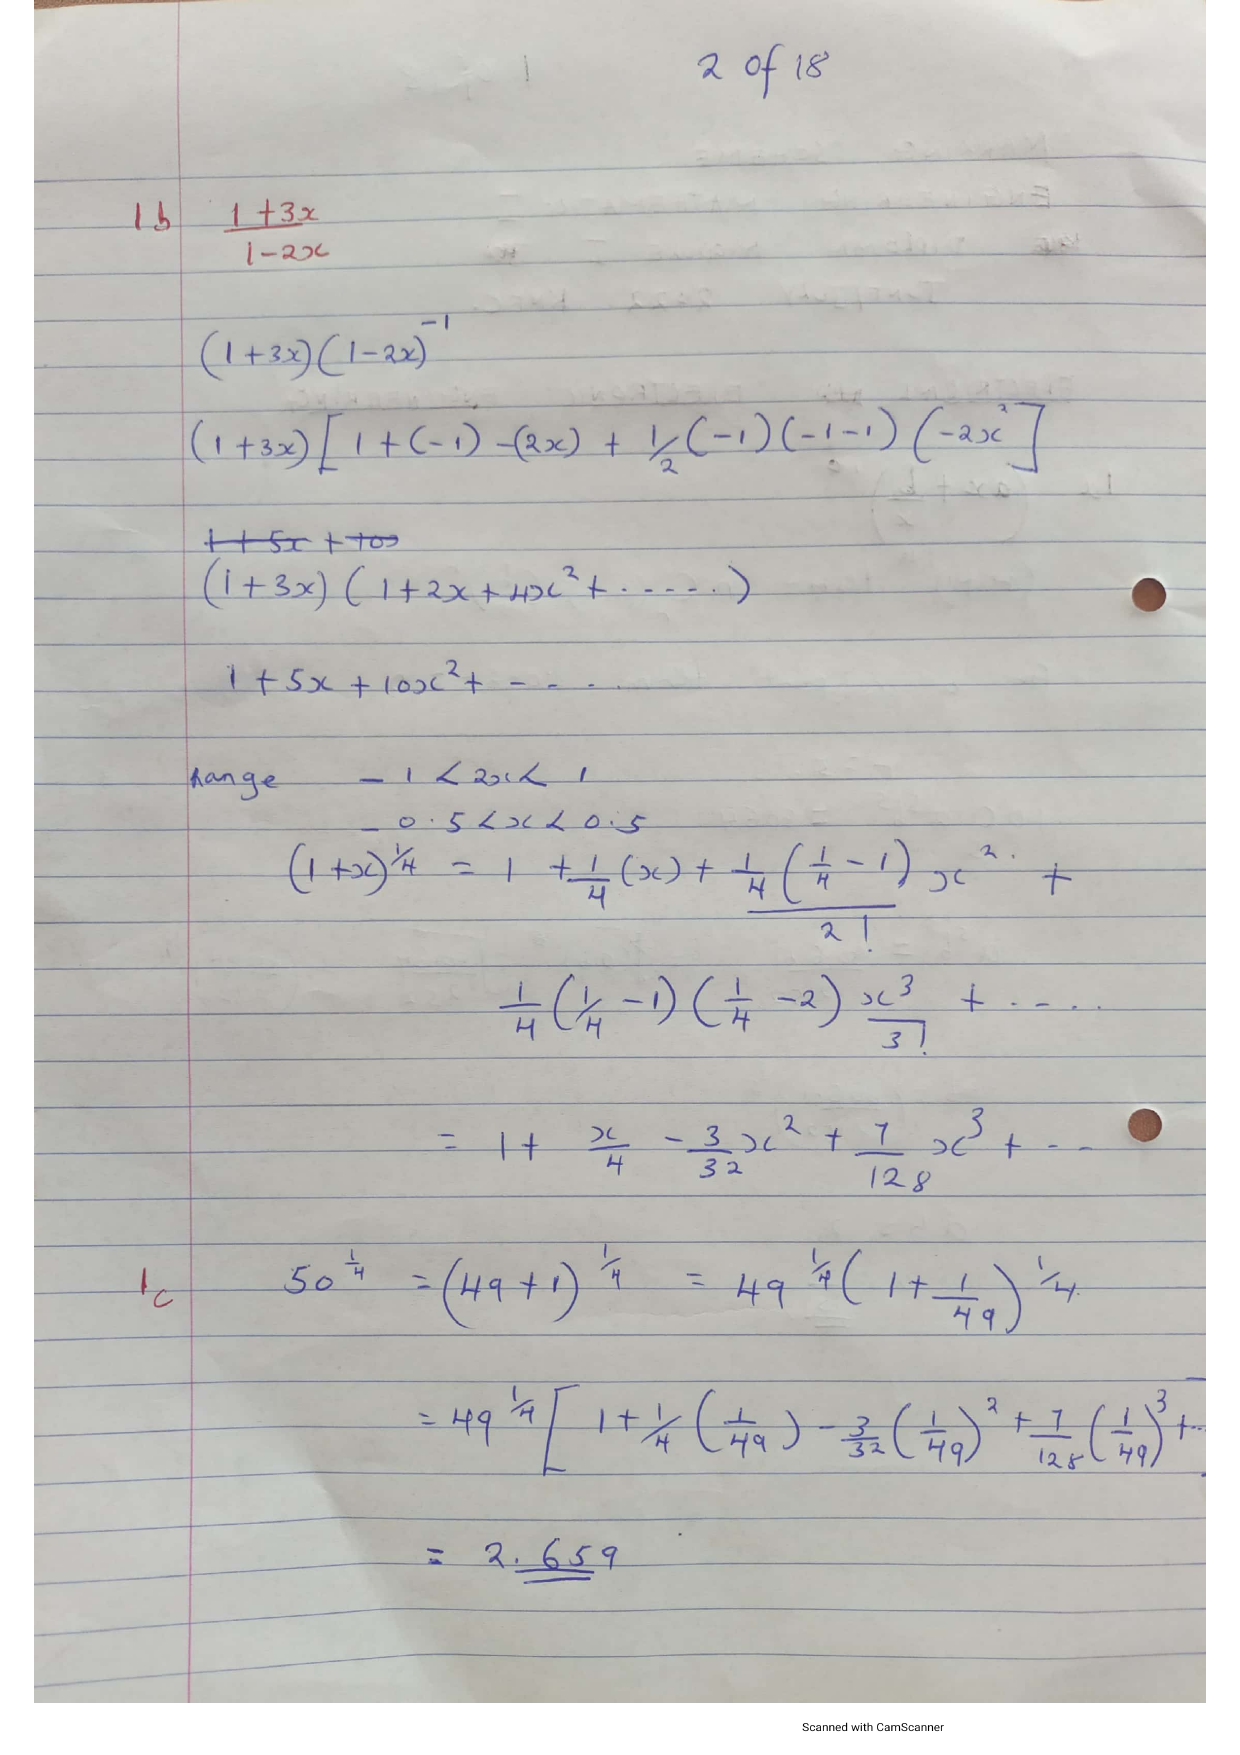 2 of 18
1b (1+3x)/(1-2x)
(1+3x)(1-2x)^-1
(1+3x)[1+(-1)-(2x)+1/2(-1)(-1-1)(-2x²]
1+5x+10x
(1+3x)(1+2x+4x²+......)
1+5x+10x²+----
Range -1<2x<1
-0.5<x<0.5
(1+x)^1/4 = 1+1/4(x)+1/4(1/4-1)/2! x²+
1/4(1/4-1)(1/4-2)x³/3!+----
= 1+x/4-3/32x²+7/128x³+--
1c 50^1/4 = (49+1)^1/4 = 49^1/4(1+1/49)^1/4
= 49^1/4[1+1/4(1/49)-3/32(1/49)²+7/128(1/49)³+--]
= 2.659
Scanned with CamScanner